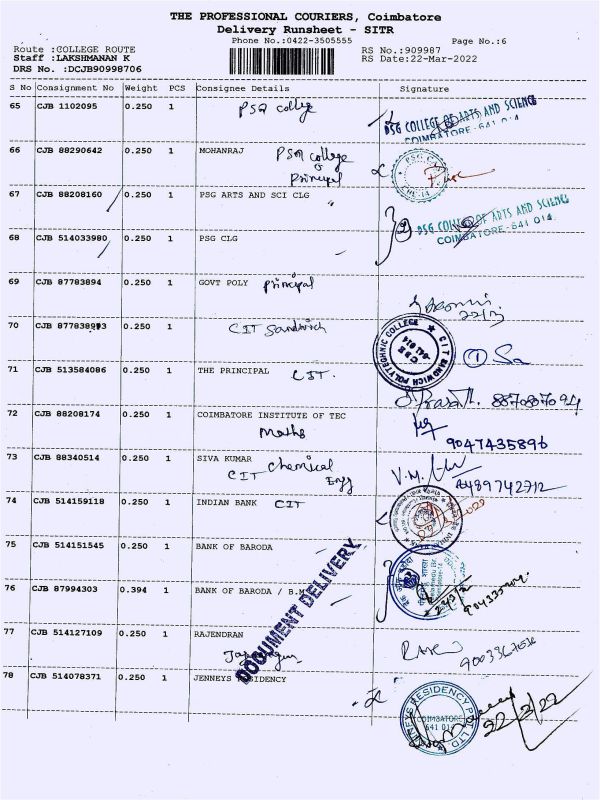 THE PROFESSIONAL COURIERS, Coimbatore
Delivery Runsheet - SITR
Phone No.:0422-3505555 Page No.:6
Route :COLLEGE ROUTE RS No.:909987
Staff :LAKSHMANAN K RS Date:22-Mar-2022
DRS No. :DCJB90998706
S No Consignment No Weight PCS Consignee Details Signature
65 CJB 1102095 0.250 1 PSG college
PSG COLLEGE OF ARTS AND SCIENCE
COIMBATORE-641 014
66 CJB 88290642 0.250 1 MOHANRAJ PSG college
Principal
67 CJB 88208160 0.250 1 PSG ARTS AND SCI CLG
PSG COLLEGE OF ARTS AND SCIENCE
COIMBATORE-641 014
68 CJB 514033980 0.250 1 PSG CLG
69 CJB 87783894 0.250 1 GOVT POLY Principal
22/3
70 CJB 877838993 0.250 1 CIT Sandwich
CIT SANDWICH POLYTECHNIC COLLEGE
CBE
-641 014
71 CJB 513584086 0.250 1 THE PRINCIPAL CIT. 1
72 CJB 88208174 0.250 1 COIMBATORE INSTITUTE OF TEC
Maths 9047435896
73 CJB 88340514 0.250 1 SIVA KUMAR
CIT Chemical Engg
V.M.
74 CJB 514159118 0.250 1 INDIAN BANK CIT
75 CJB 514151545 0.250 1 BANK OF BARODA
76 CJB 87994303 0.394 1 BANK OF BARODA / B.M
DOCUMENT DELIVERY
77 CJB 514127109 0.250 1 RAJENDRAN
78 CJB 514078371 0.250 1 JENNEYS RESIDENCY
JENNEYS RESIDENCY PVT LTD
COIMBATORE
641 014
22/3/22